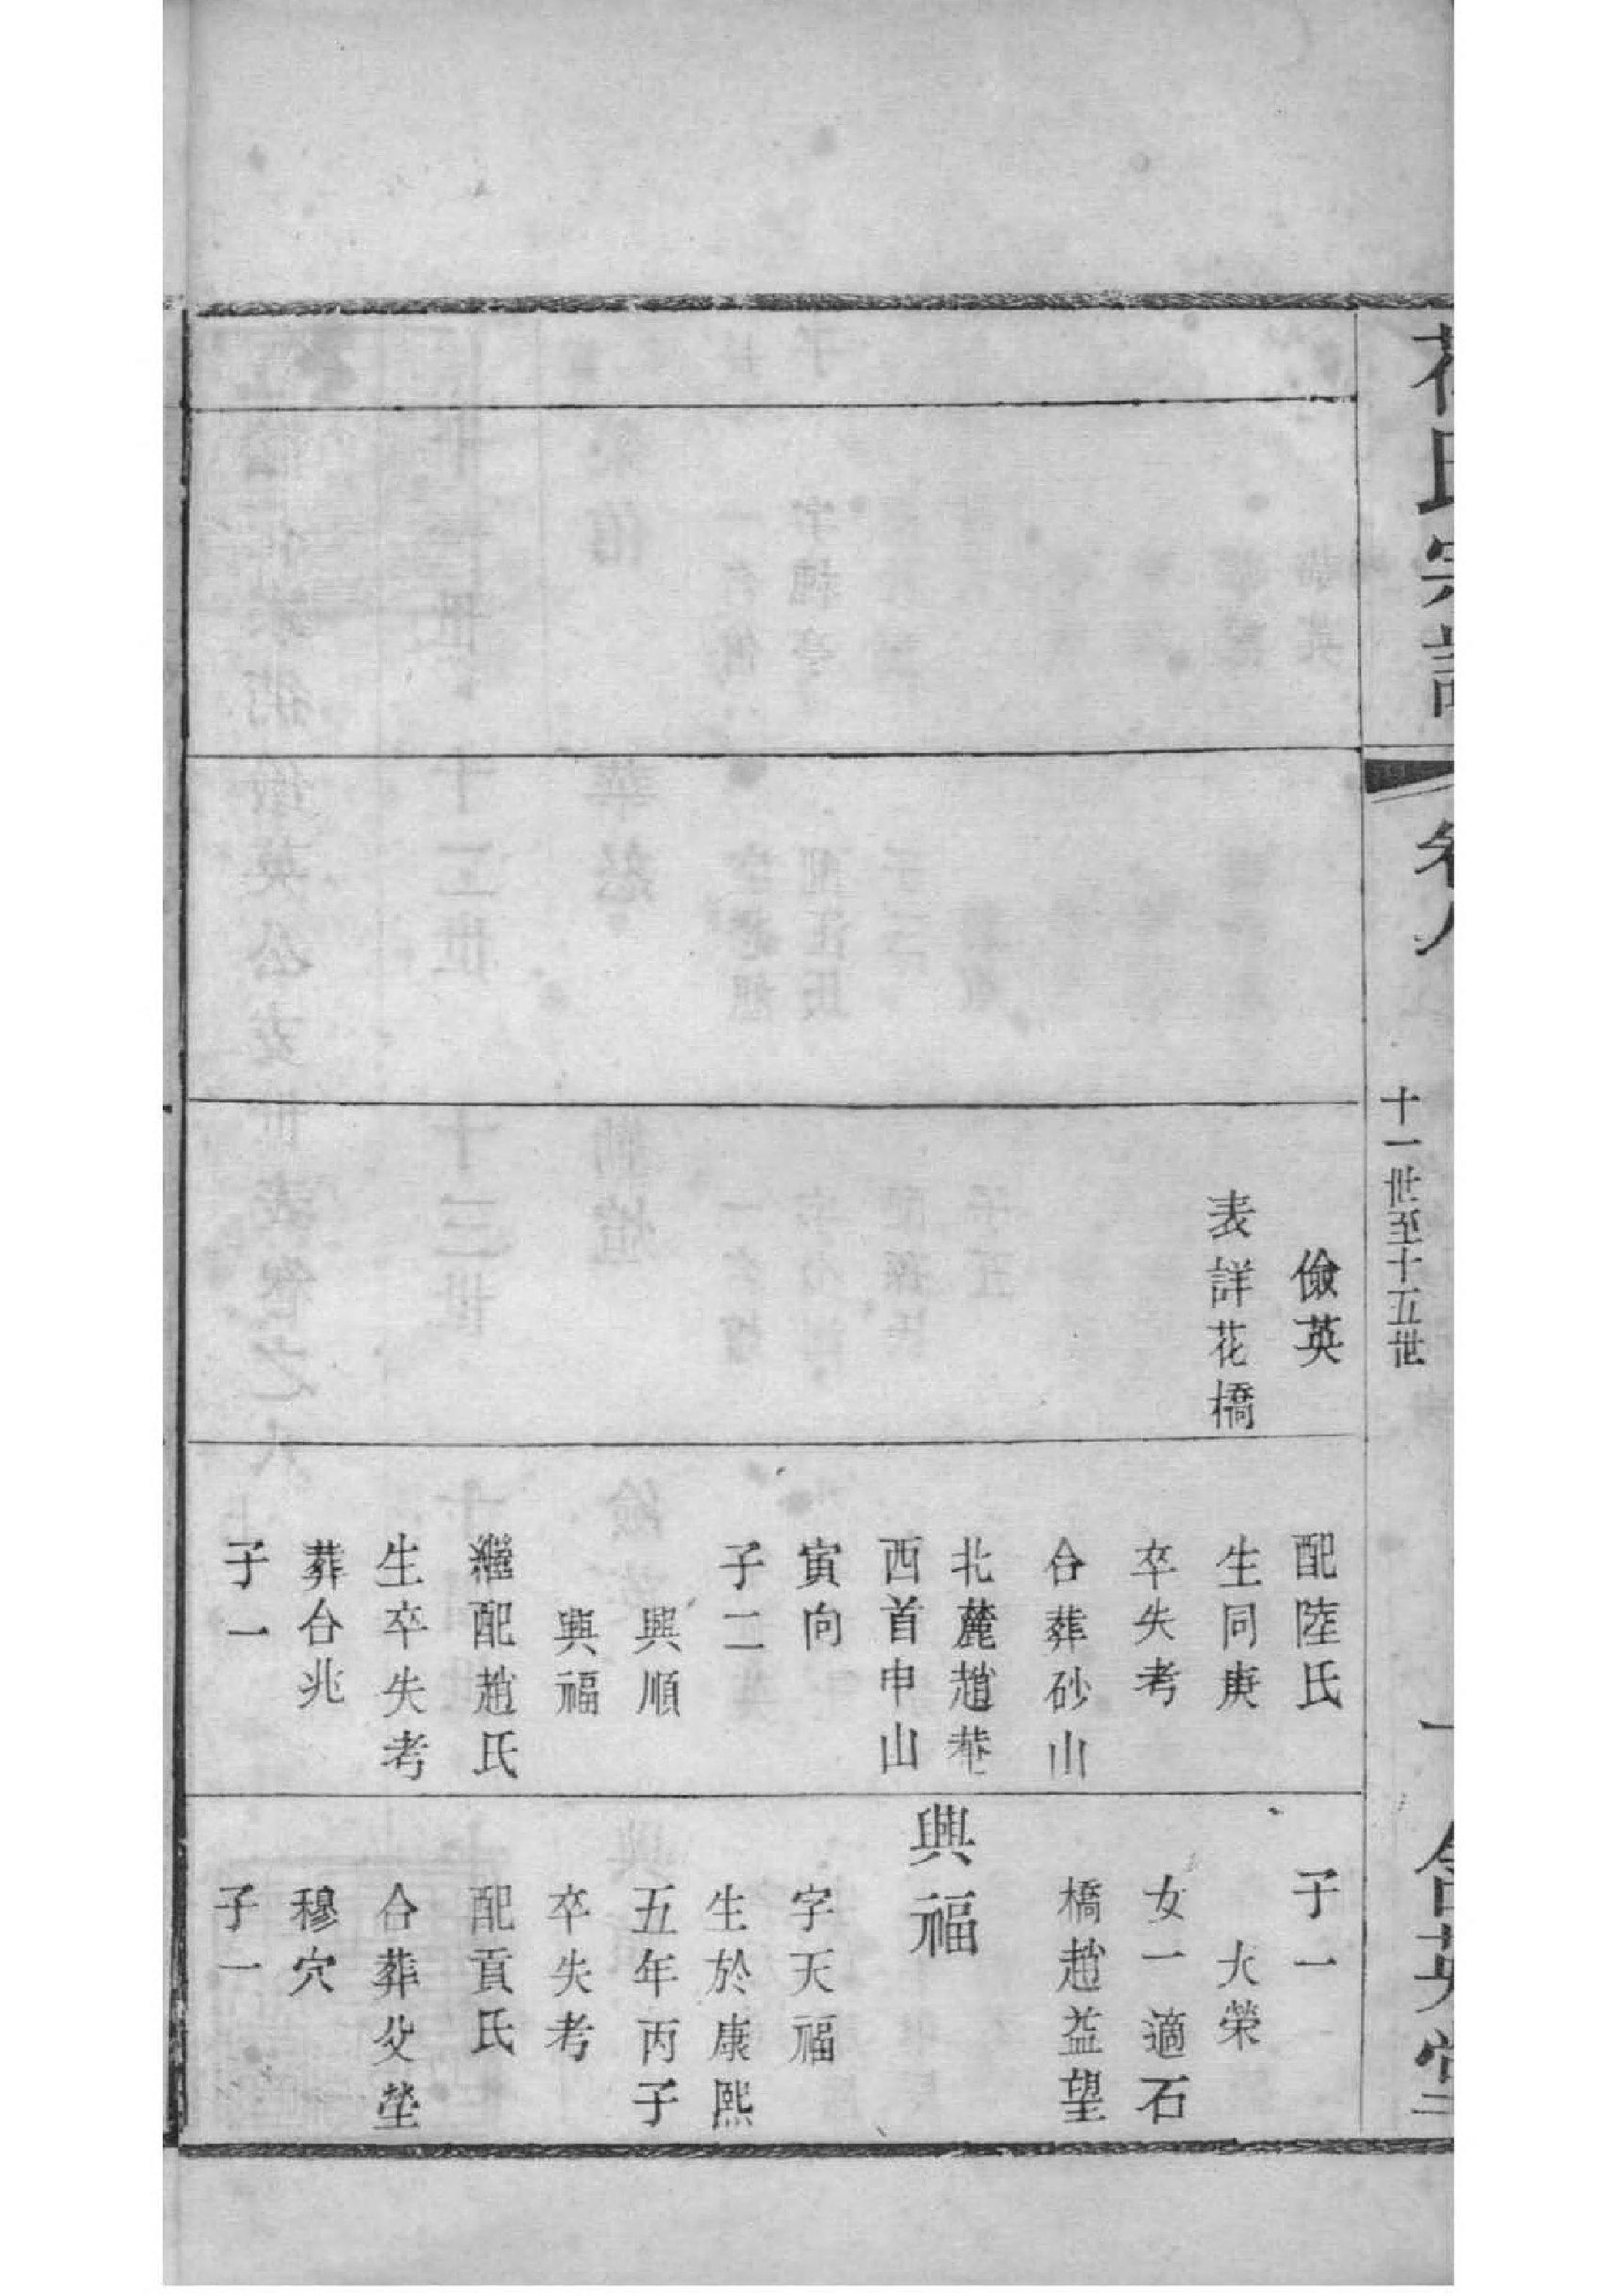 花氏宗譜
卷八
十一世至十五世
一
含英堂
儉英
表詳花橋
配陸氏
生同庚
卒失考
合葬砂山
北麓趙巷
西首申山
寅向
子二
興順
興福
繼配趙氏
生卒失考
葬合兆
子一
子一
大榮
女一適石
橋趙益望
興福
字天福
生於康熙
五年丙子
卒失考
配貢氏
合葬父塋
穆穴
子一